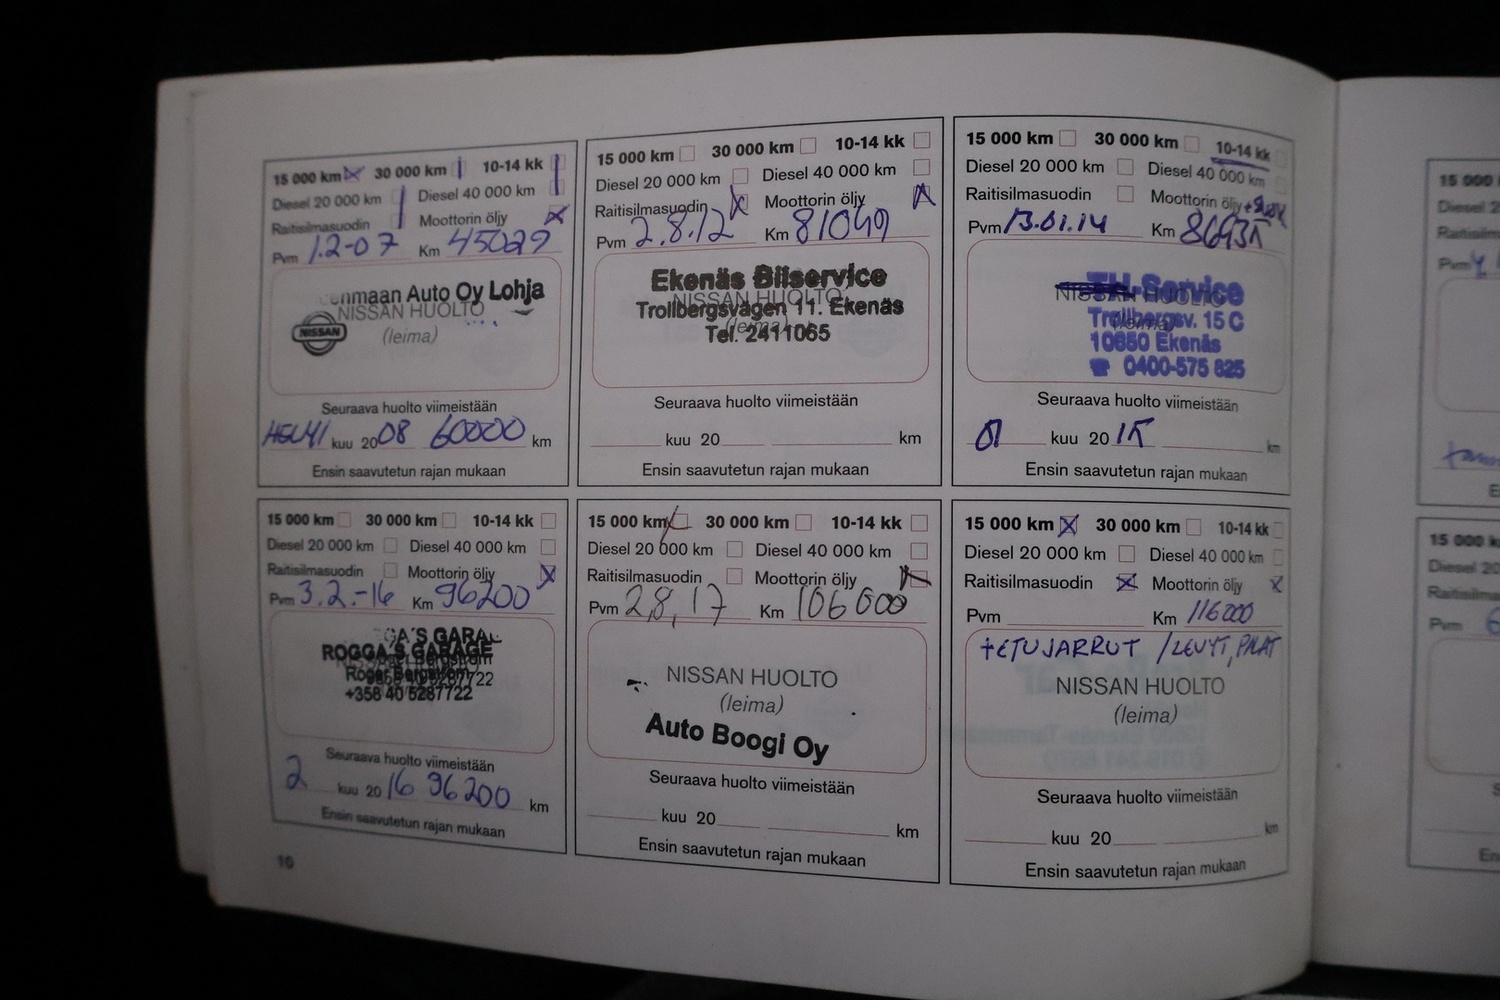 15 000 km 30 000 km 10-14 kk
Diesel 20 000 km Diesel 40 000 km
Raitisilmasuodin Moottorin öljy
Pvm 1.2-07 Km 45029
enmaan Auto Oy Lohja
NISSAN HUOLTO
NISSAN
(leima)
Seuraava huolto viimeistään
HELMI kuu 2008 60000 km
Ensin saavutetun rajan mukaan
15 000 km 30 000 km 10-14 kk
Diesel 20 000 km Diesel 40 000 km
Raitisilmasuodin Moottorin öljy
Pvm 2.8.12 Km 81049
Ekenäs Bilservice
NISSAN HUOLTO
Trollbergsvägen 11. Ekenäs
(leima)
Tel. 2411065
Seuraava huolto viimeistään
kuu 20 km
Ensin saavutetun rajan mukaan
15 000 km 30 000 km 10-14 kk
Diesel 20 000 km Diesel 40 000 km
Raitisilmasuodin Moottorin öljy
Pvm 13.01.14 Km
TH-Service
NISSAN HUOLTO
Trollbergsv. 15 C
(leima)
10650 Ekenäs
0400-575 825
Seuraava huolto viimeistään
01 kuu 2015 km
Ensin saavutetun rajan mukaan
15 000 km 30 000 km 10-14 kk
Diesel 20 000 km Diesel 40 000 km
Raitisilmasuodin Moottorin öljy
Pvm 3.2.-16 Km 96200
GA'S GARA
ROGGA'S GARAGE
Roger Bergström
+358 40 5287722
Seuraava huolto viimeistään
2 kuu 2016 96200 km
Ensin saavutetun rajan mukaan
15 000 km 30 000 km 10-14 kk
Diesel 20 000 km Diesel 40 000 km
Raitisilmasuodin Moottorin öljy
Pvm 2,8,17 Km 106000
NISSAN HUOLTO
(leima)
Auto Boogi Oy
Seuraava huolto viimeistään
kuu 20 km
Ensin saavutetun rajan mukaan
15 000 km 30 000 km 10-14 kk
Diesel 20 000 km Diesel 40 000 km
Raitisilmasuodin Moottorin öljy
Pvm Km 116200
+ETUJARRUT /LEVYT, PALAT
NISSAN HUOLTO
(leima)
Seuraava huolto viimeistään
kuu 20 km
Ensin saavutetun rajan mukaan
10
15 000
Diesel 20
Raitisilma
Pvm
15 000 k
Diesel 20
Raitisilma
Pvm